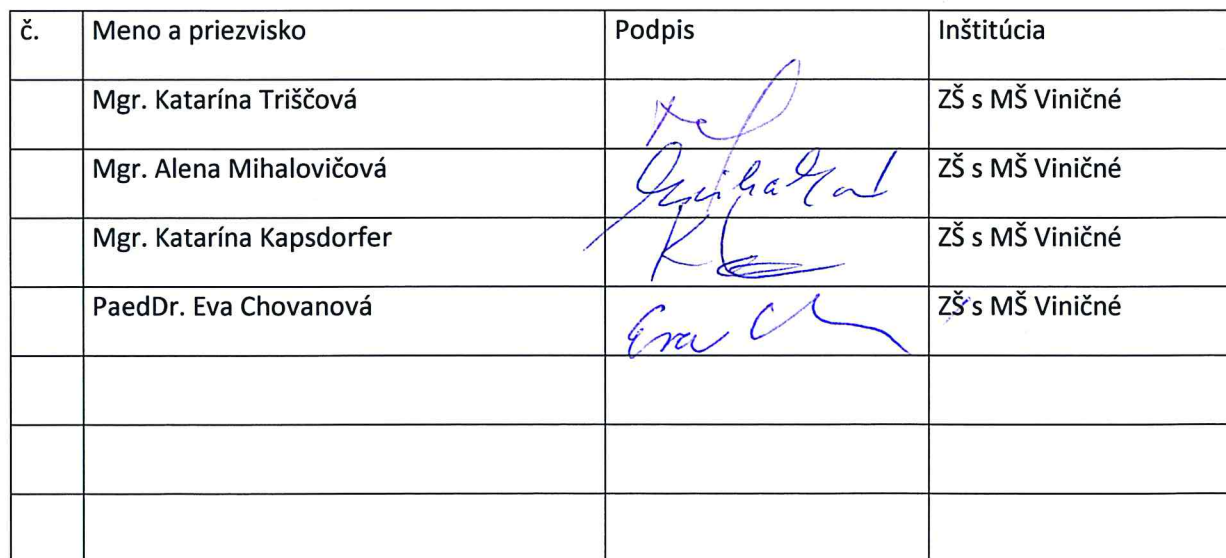 č. Meno a priezvisko Podpis Inštitúcia
Mgr. Katarína Triščová ZŠ s MŠ Viničné
Mgr. Alena Mihalovičová ZŠ s MŠ Viničné
Mgr. Katarína Kapsdorfer ZŠ s MŠ Viničné
PaedDr. Eva Chovanová Eva ZŠ s MŠ Viničné